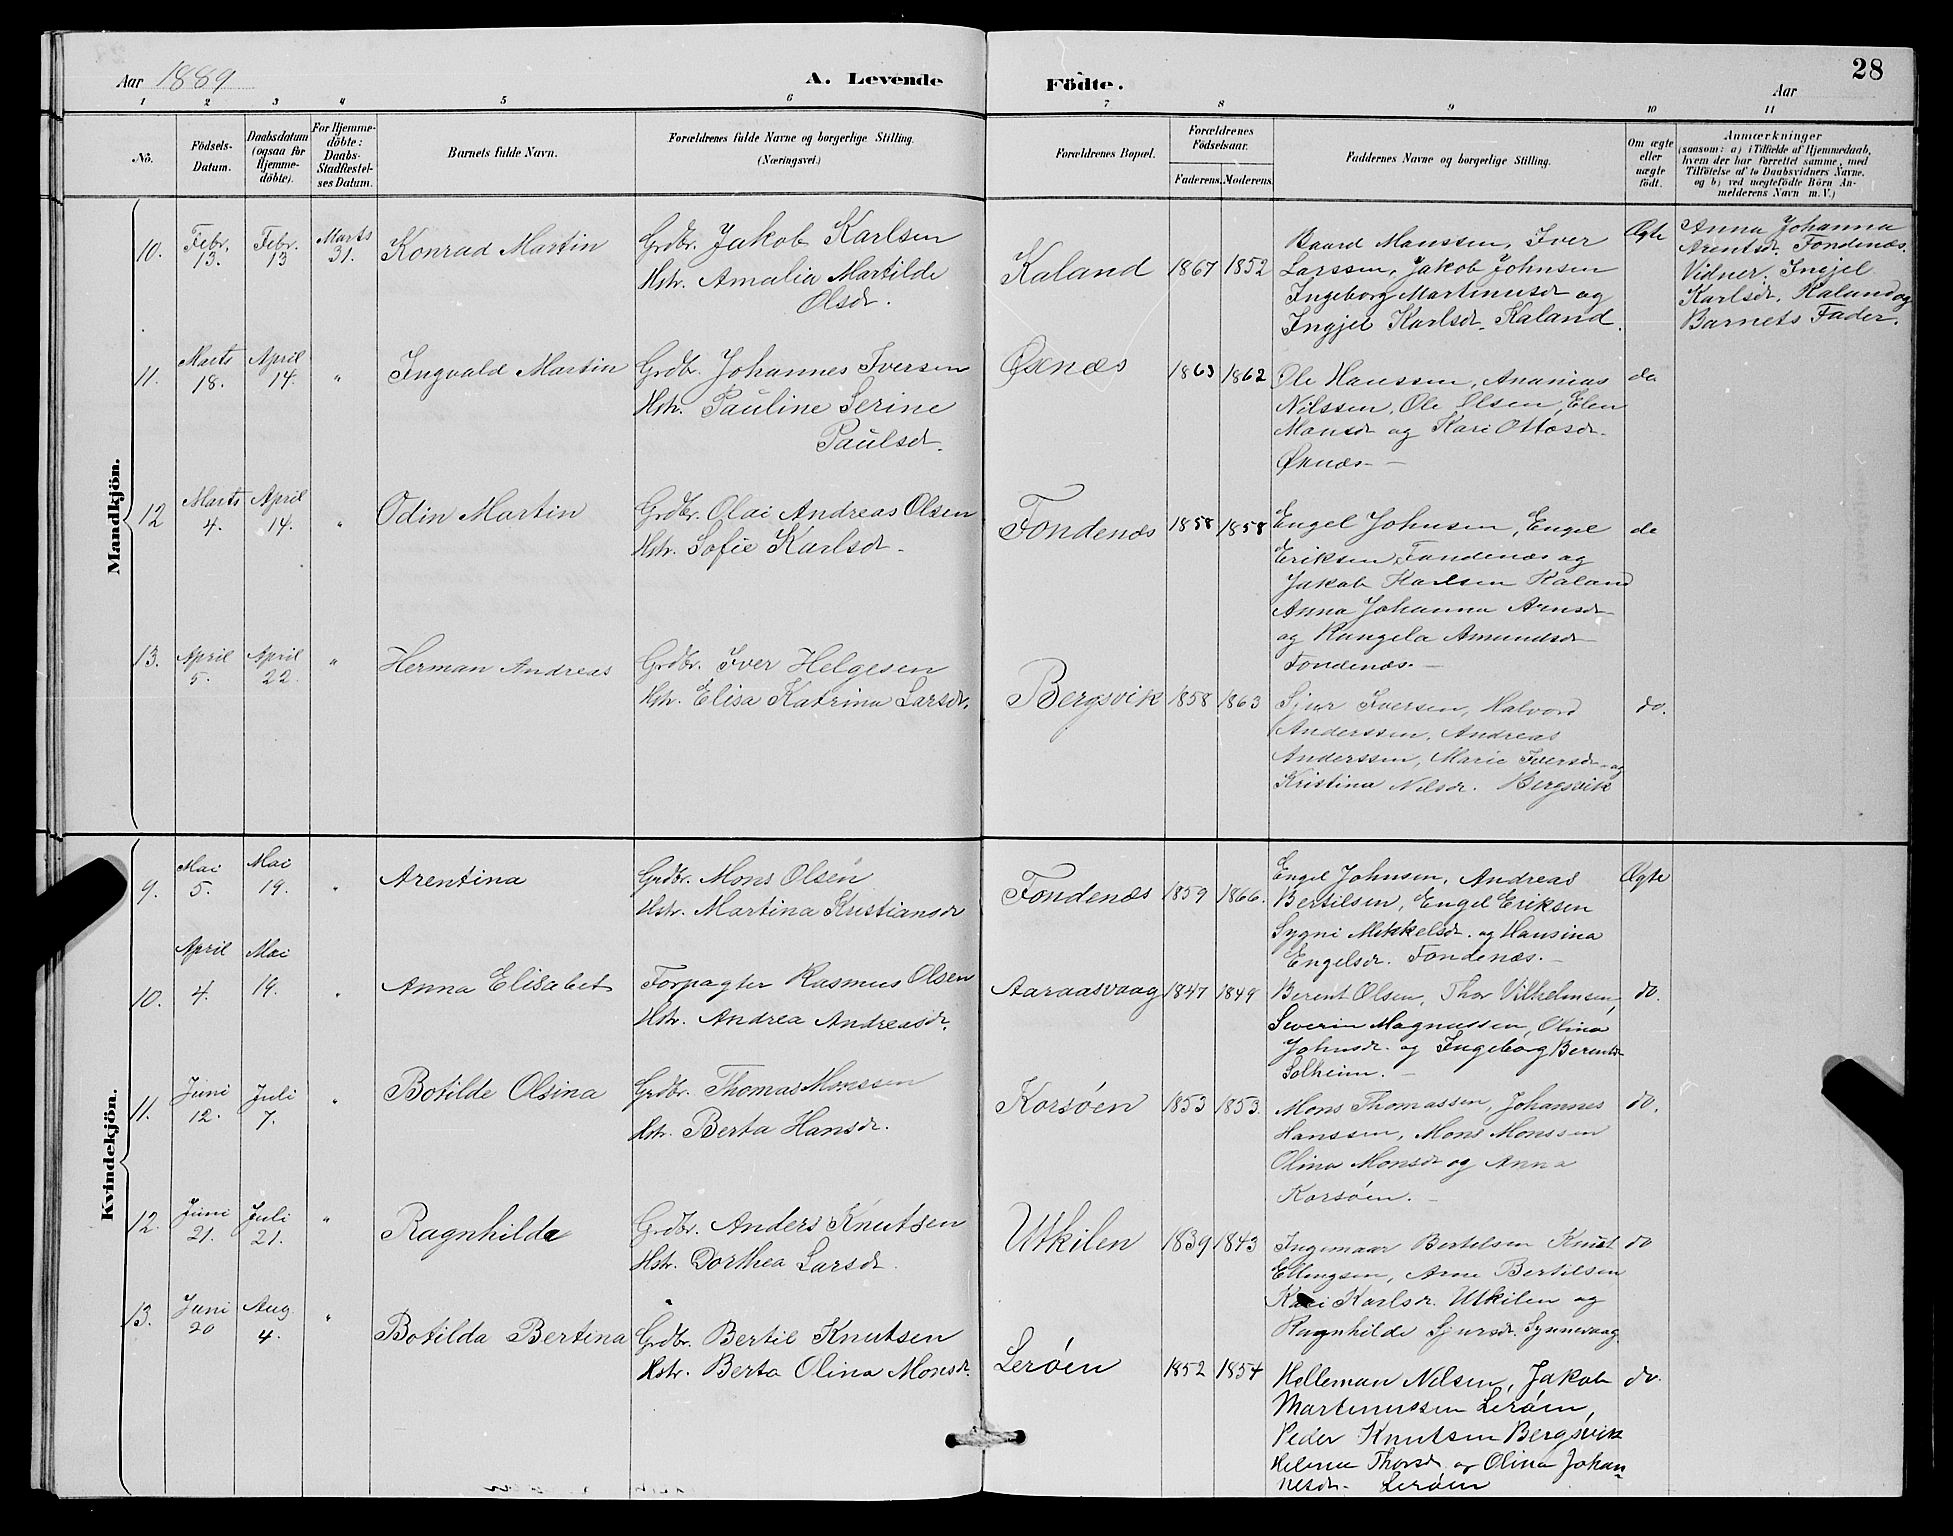 28
Aar 1889
A. Levende Födte.
Aar
1 2 3 4 5 6 7 8 9 10 11
No.
Födsels-
Datum.
Daabsdatum
(ogsaa for
Hjemme-
döbte).
For Hjemme-
döbte:
Daabs-
Stadfæstel-
ses Datum.
Barnets fulde Navn.
Forældrenes fulde Navne og borgerlige Stilling.
(Næringsvei.)
Forældrenes Bopæl.
Forældrenes
Födselsaar.
Faderens. Moderens.
Faddernes Navne og borgerlige Stilling.
Om ægte
eller
uægte
födt.
Anmærkninger
(saasom: a) i Tilfælde af Hjemmedaab,
hvem der har forrettet samme, med
Tilföielse af to Daabsvidners Navne.
og b) ved uægtefödte Börn An-
melderens Navn m. V.)
Mandkjön.
10. Febr. 13. Febr. 13 Marts 31. Konrad Martin
Grdbr. Jakob Karlsen
Hstr. Amalia Martilde
Olsdr.
Kaland 1867 1852
Baard Monssen, Iver
Larssen, Jakob Johnsen
Ingeborg Martinusdr og
Ingjel Karlsdr. Kaland.
Ægte
Anna Johanna
Arentsdr. Fondenæs.
Vidner. Ingjel
Karlsdr. Kaland og
Barnets Fader.
11. Marts 18. April 14. " Ingvald Martin
Grdbr. Johannes Iversen
Hstr. Pauline Serine
Paulsdr.
Øxnæs 1863 1862
Ole Hanssen, Ananias
Nilssen, Ole Olsen, Elen
Monsdr og Kari Ottosdr.
Øxnæs. —
do
12 Marts 4. April 14. " Odin Martin
Grdbr. Olai Andreas Olsen
Hstr. Sofie Karlsdr.
Fondenæs 1858 1858
Engel Johnsen, Engel
Eriksen, Fondenæs og
Jakob Karlsen Kaland
Anna Johanna Arnsdr
og Rangela Amundsdr
Fondenæs. —
do
13. April 5. April 22. " Herman Andreas
Grdbr. Iver Helgesen
Hstr. Elisa Katrina Larsdr.
Bergsvik 1858 1863
Sjur Iversen, Halvord
Anderssen, Andreas
Anderssen, Marie Iversdr. og
Kristina Nilsdr. Bergsvik
do.
Kvindekjön.
9. Mai 5. Mai 19. " Arentina
Grdbr. Mons Olsen
Hstr. Martina Kristiansdr
Fondenæs 1859 1866.
Engel Johnsen, Andreas
Bertilsen, Engel Eriksen
Sygni Mikkelsdr. og Hansina
Engelsdr. Fondenæs. —
Ægte
10. April 4. Mai 19. " Anna Elisabet
Forpagter Rasmus Olsen
Hstr. Andrea Andreasdr.
Aaraasvaag 1847 1849
Berent Olsen, Thor Vilhelmsen,
Severin Magnussen, Olina
Johnsdr. og Ingeborg Berentsdr
Solheim. —
do.
11. Juni 12. Juli 7. " Botilde Olsina
Grdbr. Thomas Monssen
Hstr. Berta Hansdr.
Korsøen 1853 1853.
Mons Thomassen, Johannes
Hanssen, Mons Monssen
Olina Monsdr og Anna
Korsøen. —
do.
12. Juni 21. Juli 21. " Ragnhilda
Grdbr. Anders Knutsen
Hstr. Dorthea Larsdr.
Utkilen 1839 1843
Ingemaar Bertelsen Knut
Ellingsen, Arne Bertilsen
Kari Karlsdr. Utkilen og
Ragnhilde Sjursdr. Synnevaag.
do
13. Juni 20 Aug. 4. " Botilda Bertina
Grdbr. Bertil Knutsen
Hstr. Berta Olina Monsdr.
Lerøen 1852 1854
Helleman Nilsen, Jakob
Martinussen Lerøen,
Peder Knutsen Bergsvik
Helena Thorsdr. og Olina Johan-
nesdr. Lerøen
do.